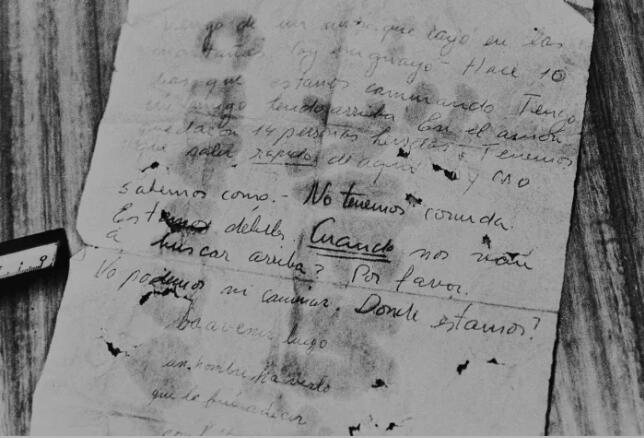 Vengo de un avion que cayó en las
montañas Soy uruguayo - Hace 10
dias que estamos caminando Tengo
un amigo herido arriba En el avión
quedaron 14 personas heridas. Tenemos
que salir rapido de aqui y no
sabemos como.- No tenemos comida.
Estamos debiles. Cuando nos van
a buscar arriba? Por favor.
No podemos ni caminar. Donde estamos?
va a venir luego
un hombre a verlo
que le fui a decir
9